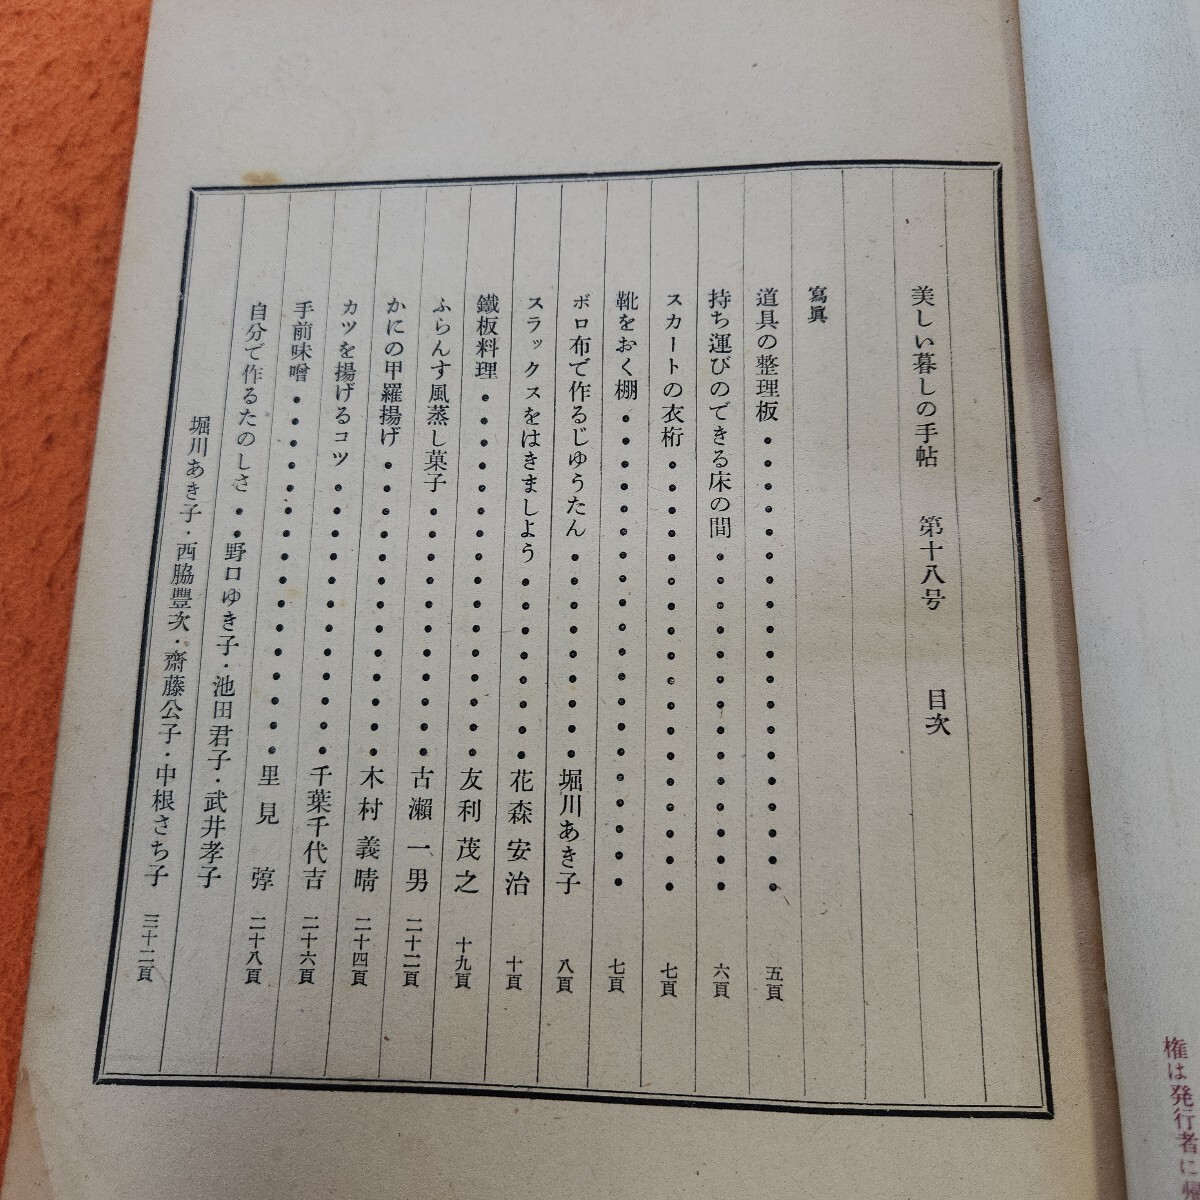 権は発行者に
美しい暮しの手帖　第十八号　目次
寫眞
道具の整理板・・・・・・・・・・・・・・・・・・・・五頁
持ち運びのできる床の間・・・・・・・・・・・・・・・六頁
スカートの衣桁・・・・・・・・・・・・・・・・・・・七頁
靴をおく棚・・・・・・・・・・・・・・・・・・・・・七頁
ボロ布で作るじゆうたん・・・・・・・・・堀川あき子　八頁
スラックスをはきましよう・・・・・・・・花森安治　十頁
鐵板料理・・・・・・・・・・・・・・・・友利茂之　十九頁
ふらんす風蒸し菓子・・・・・・・・・・・古瀬一男　二十二頁
かにの甲羅揚げ・・・・・・・・・・・・・木村義晴　二十四頁
カツを揚げるコツ・・・・・・・・・・・・千葉千代吉　二十六頁
手前味噌・・・・・・・・・・・・・・・・里見　弴　二十八頁
自分で作るたのしさ・・野口ゆき子・池田君子・武井孝子
堀川あき子・西脇豐次・齋藤公子・中根さち子　三十二頁